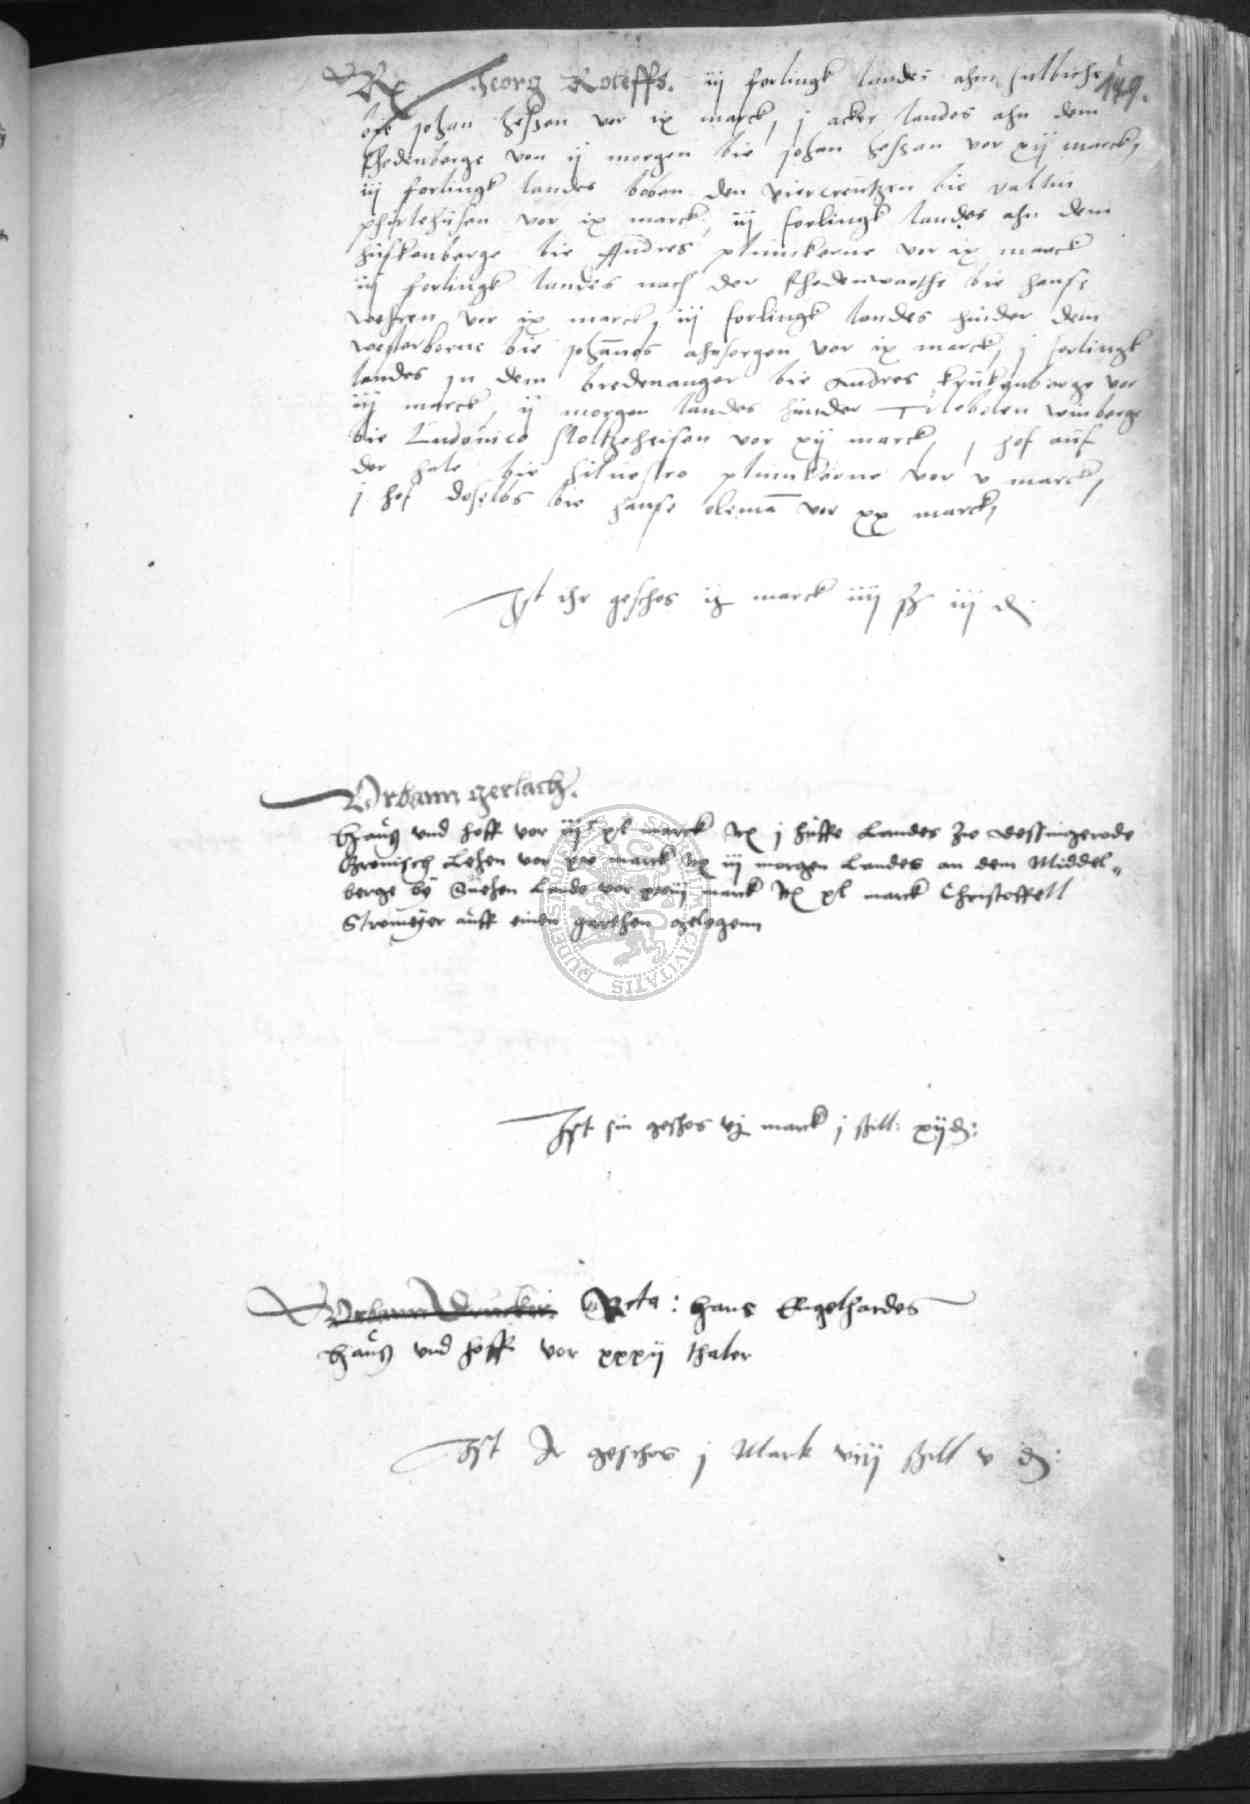 Rx Georg Roleffs. iij forlingk landes ahm
149.
bie johan hessen vor ix marck, j acker landes ahn dem
Rhodenberge von ij morgen bie johan hessen vor xij marck,
iij forlingk landes boben den viercreutzen bie valtin
vor ix marck, iij forlingk landes ahn dem
huskenberge bie Andres plumkerne vor ix marck
iij forlingk landes nach der Rhodenwarthe bie hanse
wehren vor ix marck, iij forlingk landes hinder dem
westerborne bie johannes ahnsorgen vor ix marck, j forlingk
landes in dem bredenanger bie Andres vor
iij marck, ij morgen landes hinder winberge
bie Ludovico Stoltzeheisen vor xij marck, j hof auf
der hale bie Silvestro plumkerne vor v marck,
j hof doselbs bie hanse olemans vor xx marck,
Ist ihr geschos ix marck iiij sz iij d
Urbann gerlach.
Hauß und hoff vor iijc xl marck Rx j huffe Landes zu Dessingerode
Lehen vor xxx marck Rx iij morgen Landes an dem Middel-
berge by Lande vor xviij marck Rx xl marck Christoffell
Stromeyer auff einen garthen gelegenn
SIGILLUM CIVITATIS DUDERSTADT
Ist sin geschos vj marck j szill: xij d:
Urbann Drucker Rcta: Hans Engelhardes
Hauß und hoff vor xxxij thaler
Ist Ir geschos j Mark viij szill v d: